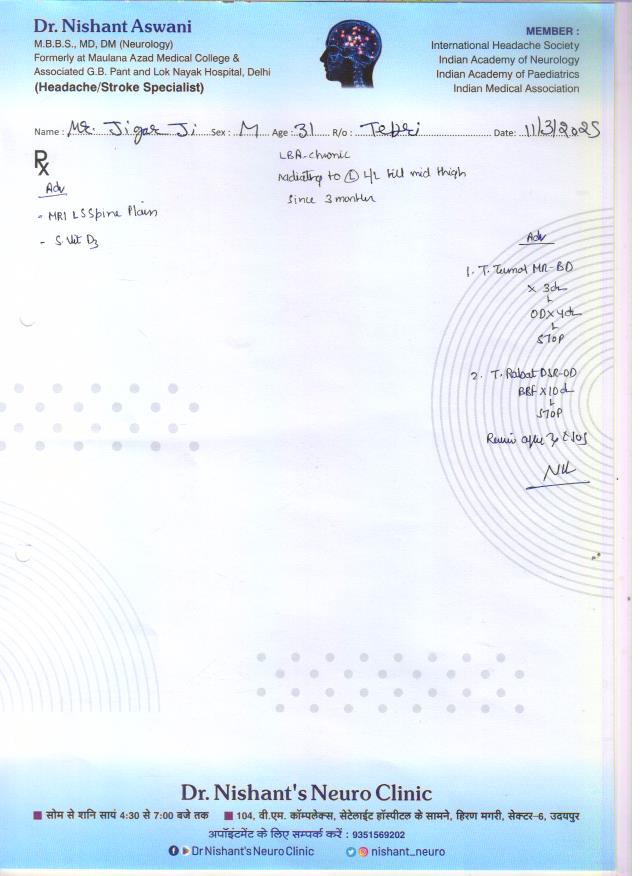 Dr. Nishant Aswani
M.B.B.S., MD, DM (Neurology)
Formerly at Maulana Azad Medical College &
Associated G.B. Pant and Lok Nayak Hospital, Delhi
(Headache/Stroke Specialist)
MEMBER :
International Headache Society
Indian Academy of Neurology
Indian Academy of Paediatrics
Indian Medical Association
Name : Mr. Jigar Ji Sex : M Age : 31 R/o : Date: 11/3/2025
Rx
LBA - chronic
radiating to (L) till mid thigh
since 3 months
Adv
- MRI LS Spine Plain
- S. Vit D3
Adv
1. T. MR-BD
x 3d
OD x 4d
STOP
2. T. DSR-OD
BBF x 10d
STOP
Dr. Nishant's Neuro Clinic
सोम से शनि सायं 4:30 से 7:00 बजे तक 104, वी.एम. कॉम्पलेक्स, सेटेलाईट हॉस्पीटल के सामने, हिरण मगरी, सेक्टर-6, उदयपुर
अपॉइंटमेंट के लिए सम्पर्क करें : 9351569202
Dr Nishant's Neuro Clinic nishant_neuro